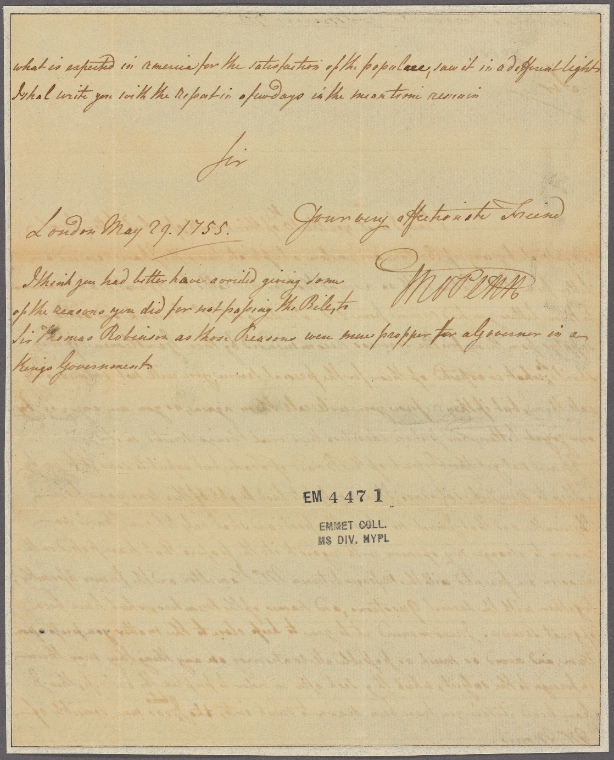 what is expected in america for the satisfaction of the populace, saw it in a different light
I shal write you with the Report in a few days in the mean time remain
Sir
Your very affectionate Freind
London May 29. 1755.
Tho Penn
I think you had better have avoided giving some
of the reasons you did for not passing the Bill, to
Sir Thomas Robinson as those Reasons were more propper for a Governer in a
Kings Government
EM 4471
EMMET COLL.
MS DIV. NYPL